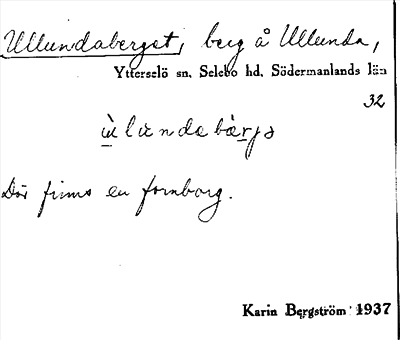 Ullundaberget, berg å Ullunda,
Ytterselö sn, Selebo hd, Södermanlands län
32
ù̱lundabàrjə
Där finns en fornborg.
Karin Bergström 1937